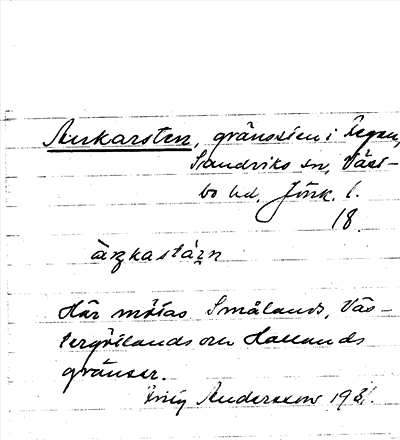 Ankarsten, gränssten i Fegen,
Sandviks sn, Väst-
bo hd. Jönk. l.
18
àŋkastárn
Här mötas Smålands, Väs-
tergötlands och Hallands
gränser.
Andersson